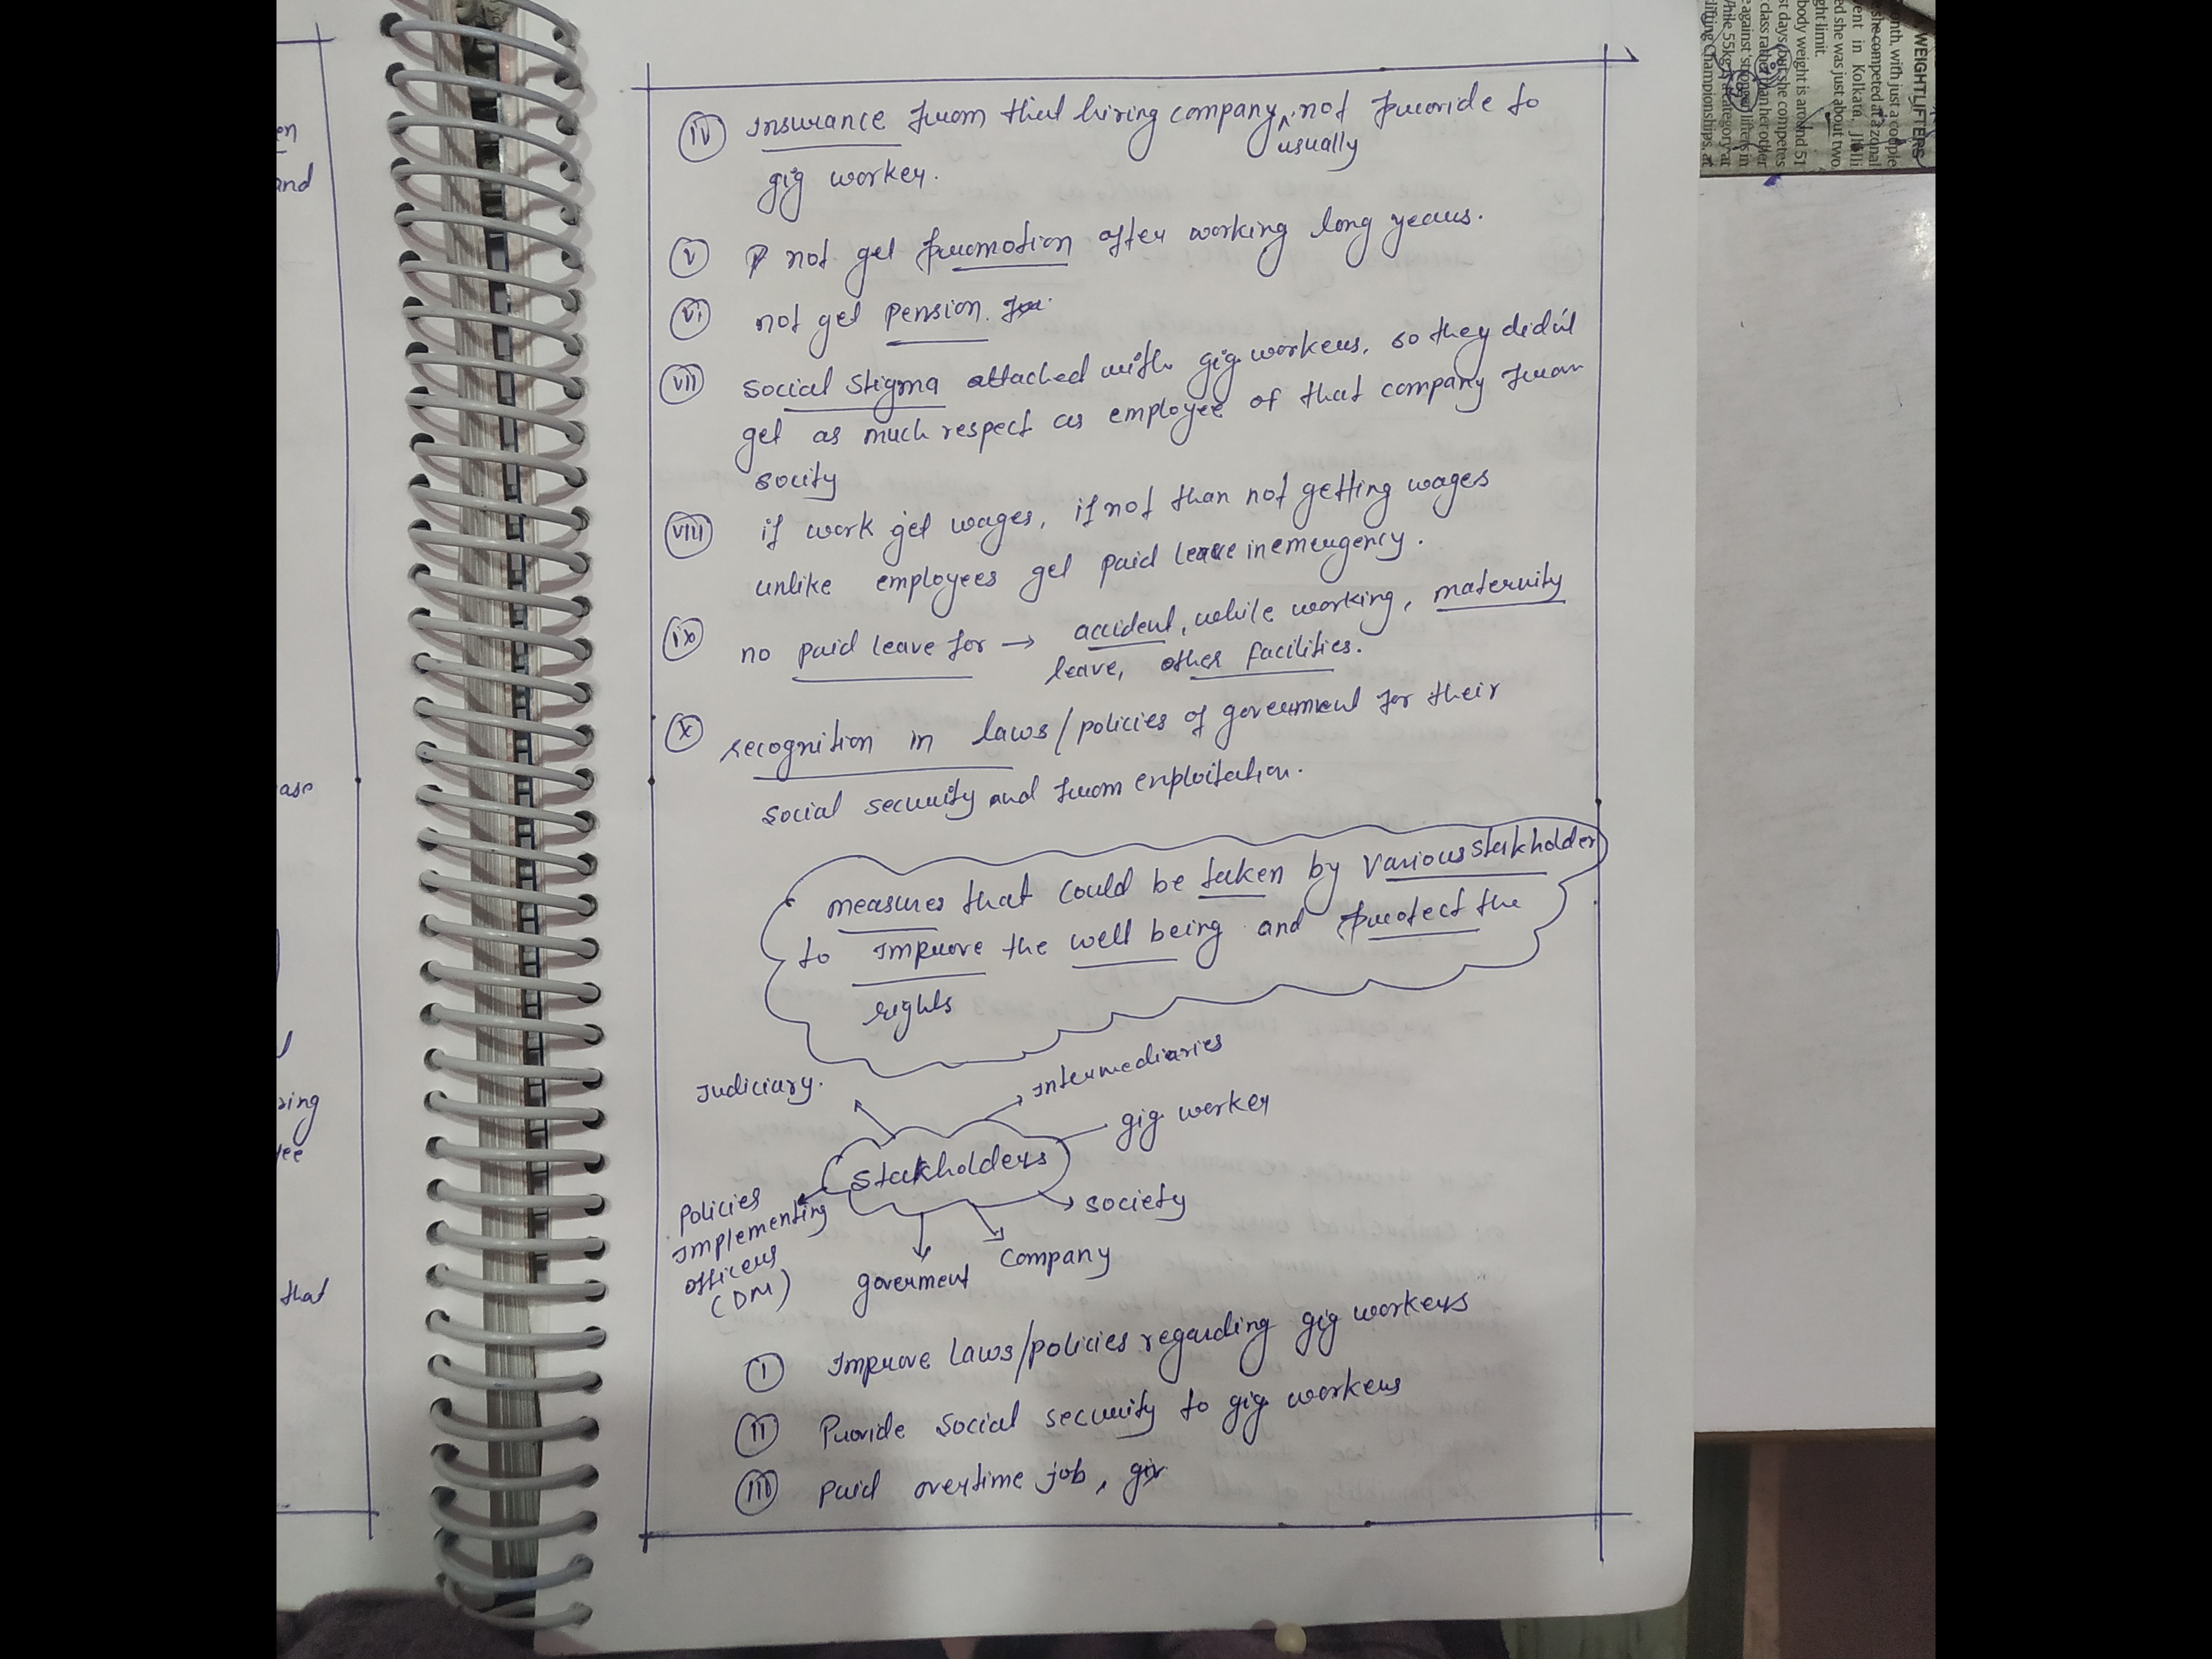 (iv) Insurance from that hiring company usually not provide to
gig worker.
(v) not get promotion after working long years.
(vi) not get pension.
(vii) social stigma attached with gig workers, so they did'nt
get as much respect as employee of that company from
socity
(viii) if work get wages, if not than not getting wages
unlike employees get paid leave in emergency.
(ix) no paid leave for → accident, while working, maternity
leave, other facilities.
(x) recognition in laws/policies of government for their
social security and from exploitation.
measures that could be taken by various stakholder
to improve the well being and protect the
rights
Judiciary.
Intermediaries
gig worker
Stakholders
society
Company
goverment
Policies
Implementing
officers
(DM)
(I) Improve laws/policies regarding gig workers
(II) Provide social security to gig workers
(III) paid overtime job,
en
and
ase
sing
yee
that
WEIGHTLIFTERS
onth, with just a couple
she competed at a zonal
ent in Kolkata, Jhilli
ed she was just about two
ght limit.
body weight is around 51
st days, but she competes
class rather than her other
against stronger lifters in
While 55kg category at
lifting Championships, at